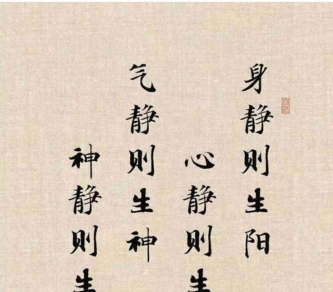 身静则生阳
心静则生
气静则生神
神静则生